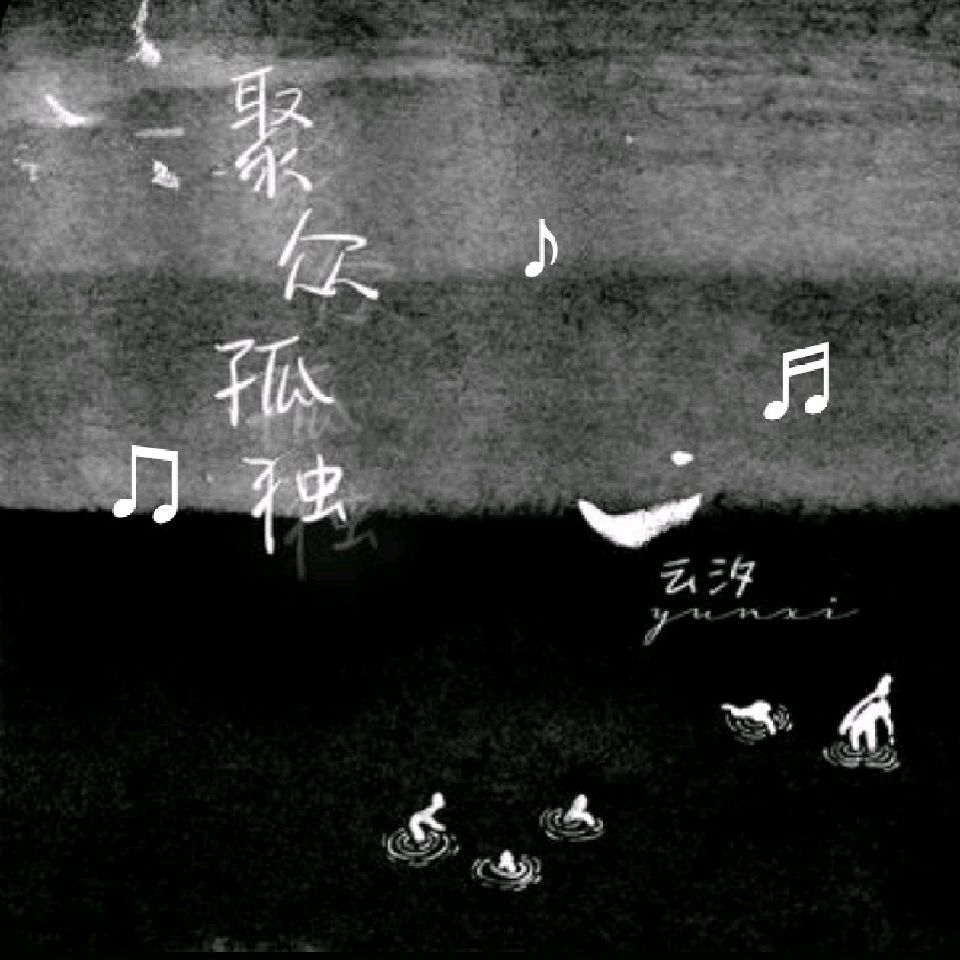 聚众孤独
云汐
yunxi